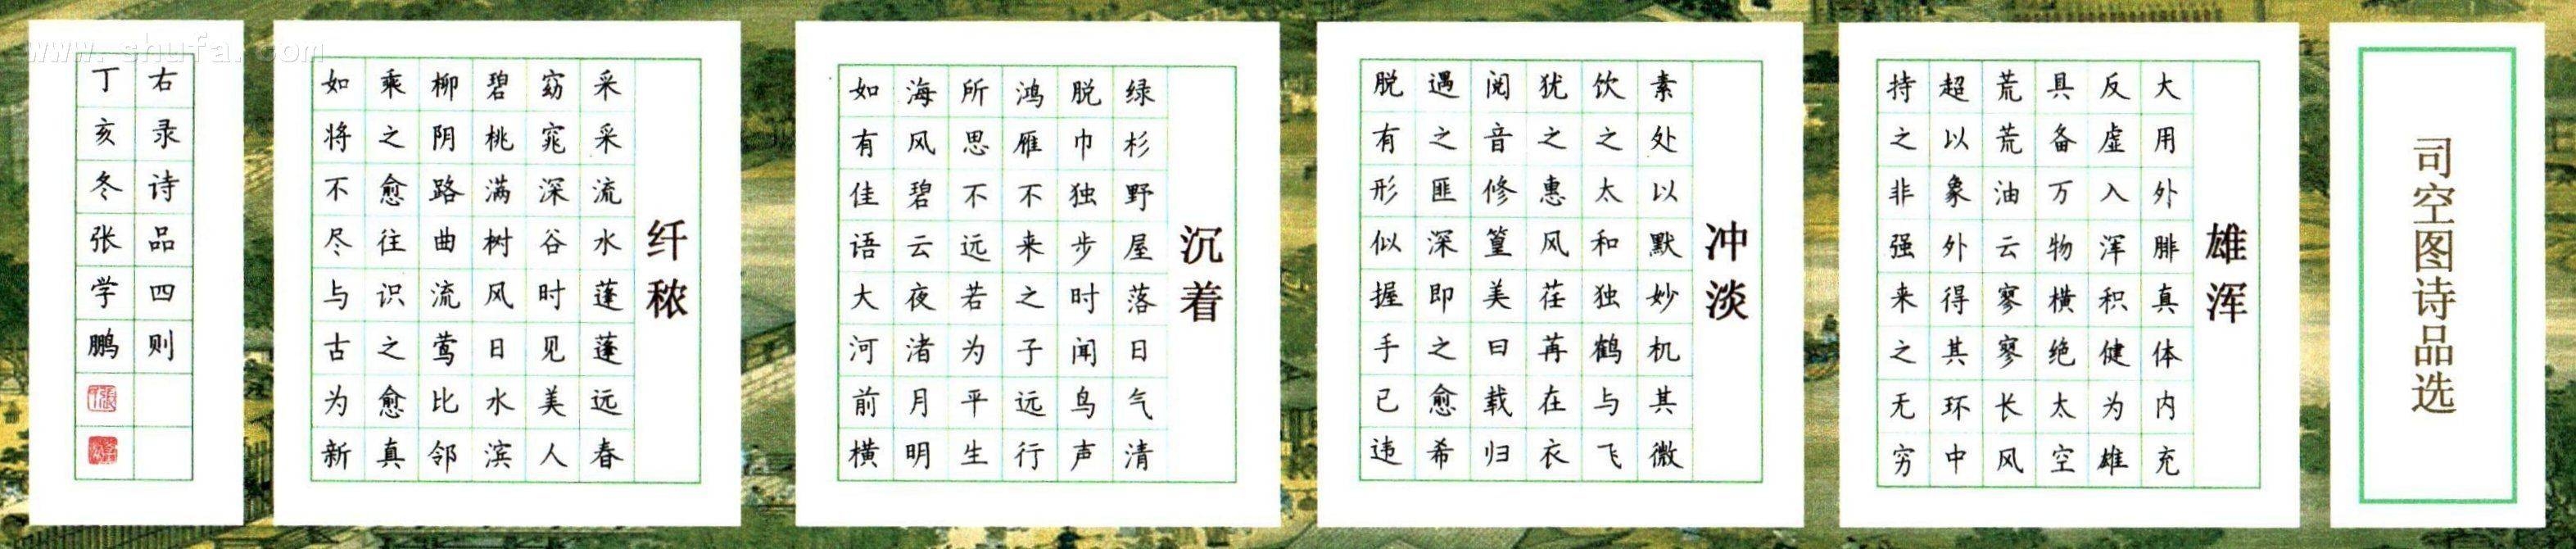 司空图诗品选
雄浑
大用外腓真体内充
反虚入浑积健为雄
具备万物横绝太空
荒荒油云寥寥长风
超以象外得其环中
持之非强来之无穷
冲淡
素处以默妙机其微
饮之太和独鹤与飞
犹之惠风荏苒在衣
阅音修篁美曰载归
遇之匪深即之愈希
脱有形似握手已违
沉着
绿杉野屋落日气清
脱巾独步时闻鸟声
鸿雁不来之子远行
所思不远若为平生
海风碧云夜渚月明
如有佳语大河前横
纤秾
采采流水蓬蓬远春
窈窕深谷时见美人
碧桃满树风日水滨
柳阴路曲流莺比邻
乘之愈往识之愈真
如将不尽与古为新
右录诗品四则
丁亥冬张学鹏
www.shufa.com